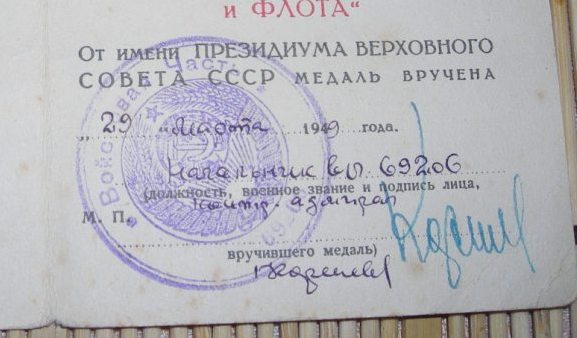 и ФЛОТА“
От имени ПРЕЗИДИУМА ВЕРХОВНОГО
СОВЕТА СССР МЕДАЛЬ ВРУЧЕНА
„29 “ Марта 1949 года.
Начальник в.ч. 69206
(должность, военное звание и подпись лица,
М. П. контр. адмирал
вручившего медаль)
Войсковая Часть